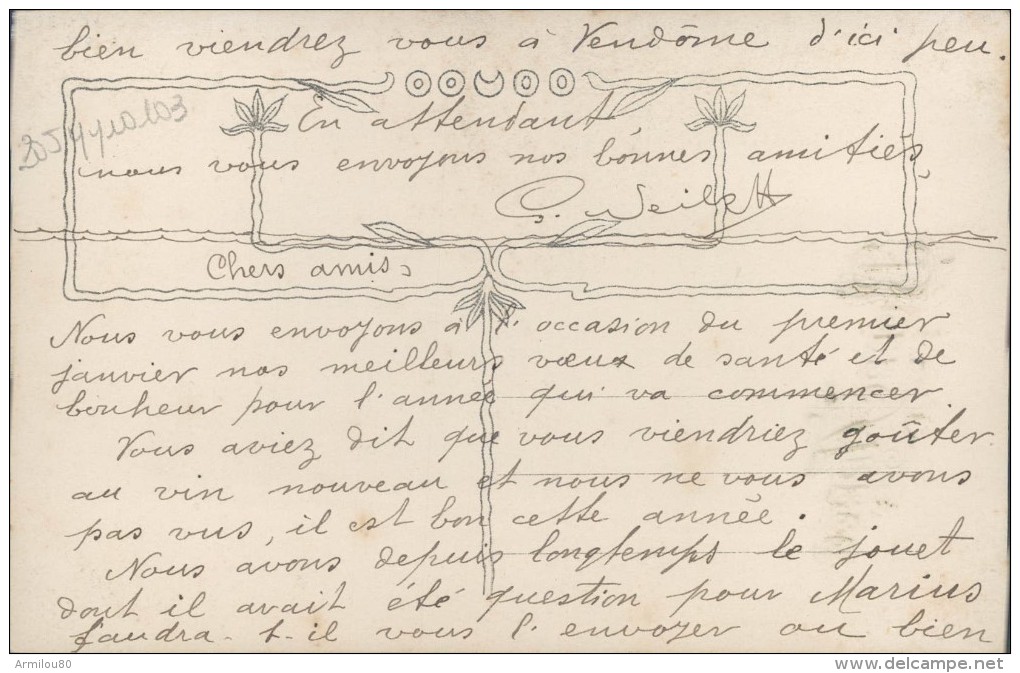 bien viendrez vous à Vendôme d'ici peu.
En attendant
nous vous envoyons nos bonnes amitiés,
Chers amis,
Nous vous envoyons à l'occasion du premier
janvier nos meilleurs vœux de santé et de
bonheur pour l'année qui va commencer.
Vous aviez dit que vous viendriez goûter
au vin nouveau et nous ne vous avons
pas vus, il est bon cette année.
Nous avons depuis longtemps le jouet
dont il avait été question pour Marius
faudra-t-il vous l'envoyer ou bien
Armilou80
delcampe.net